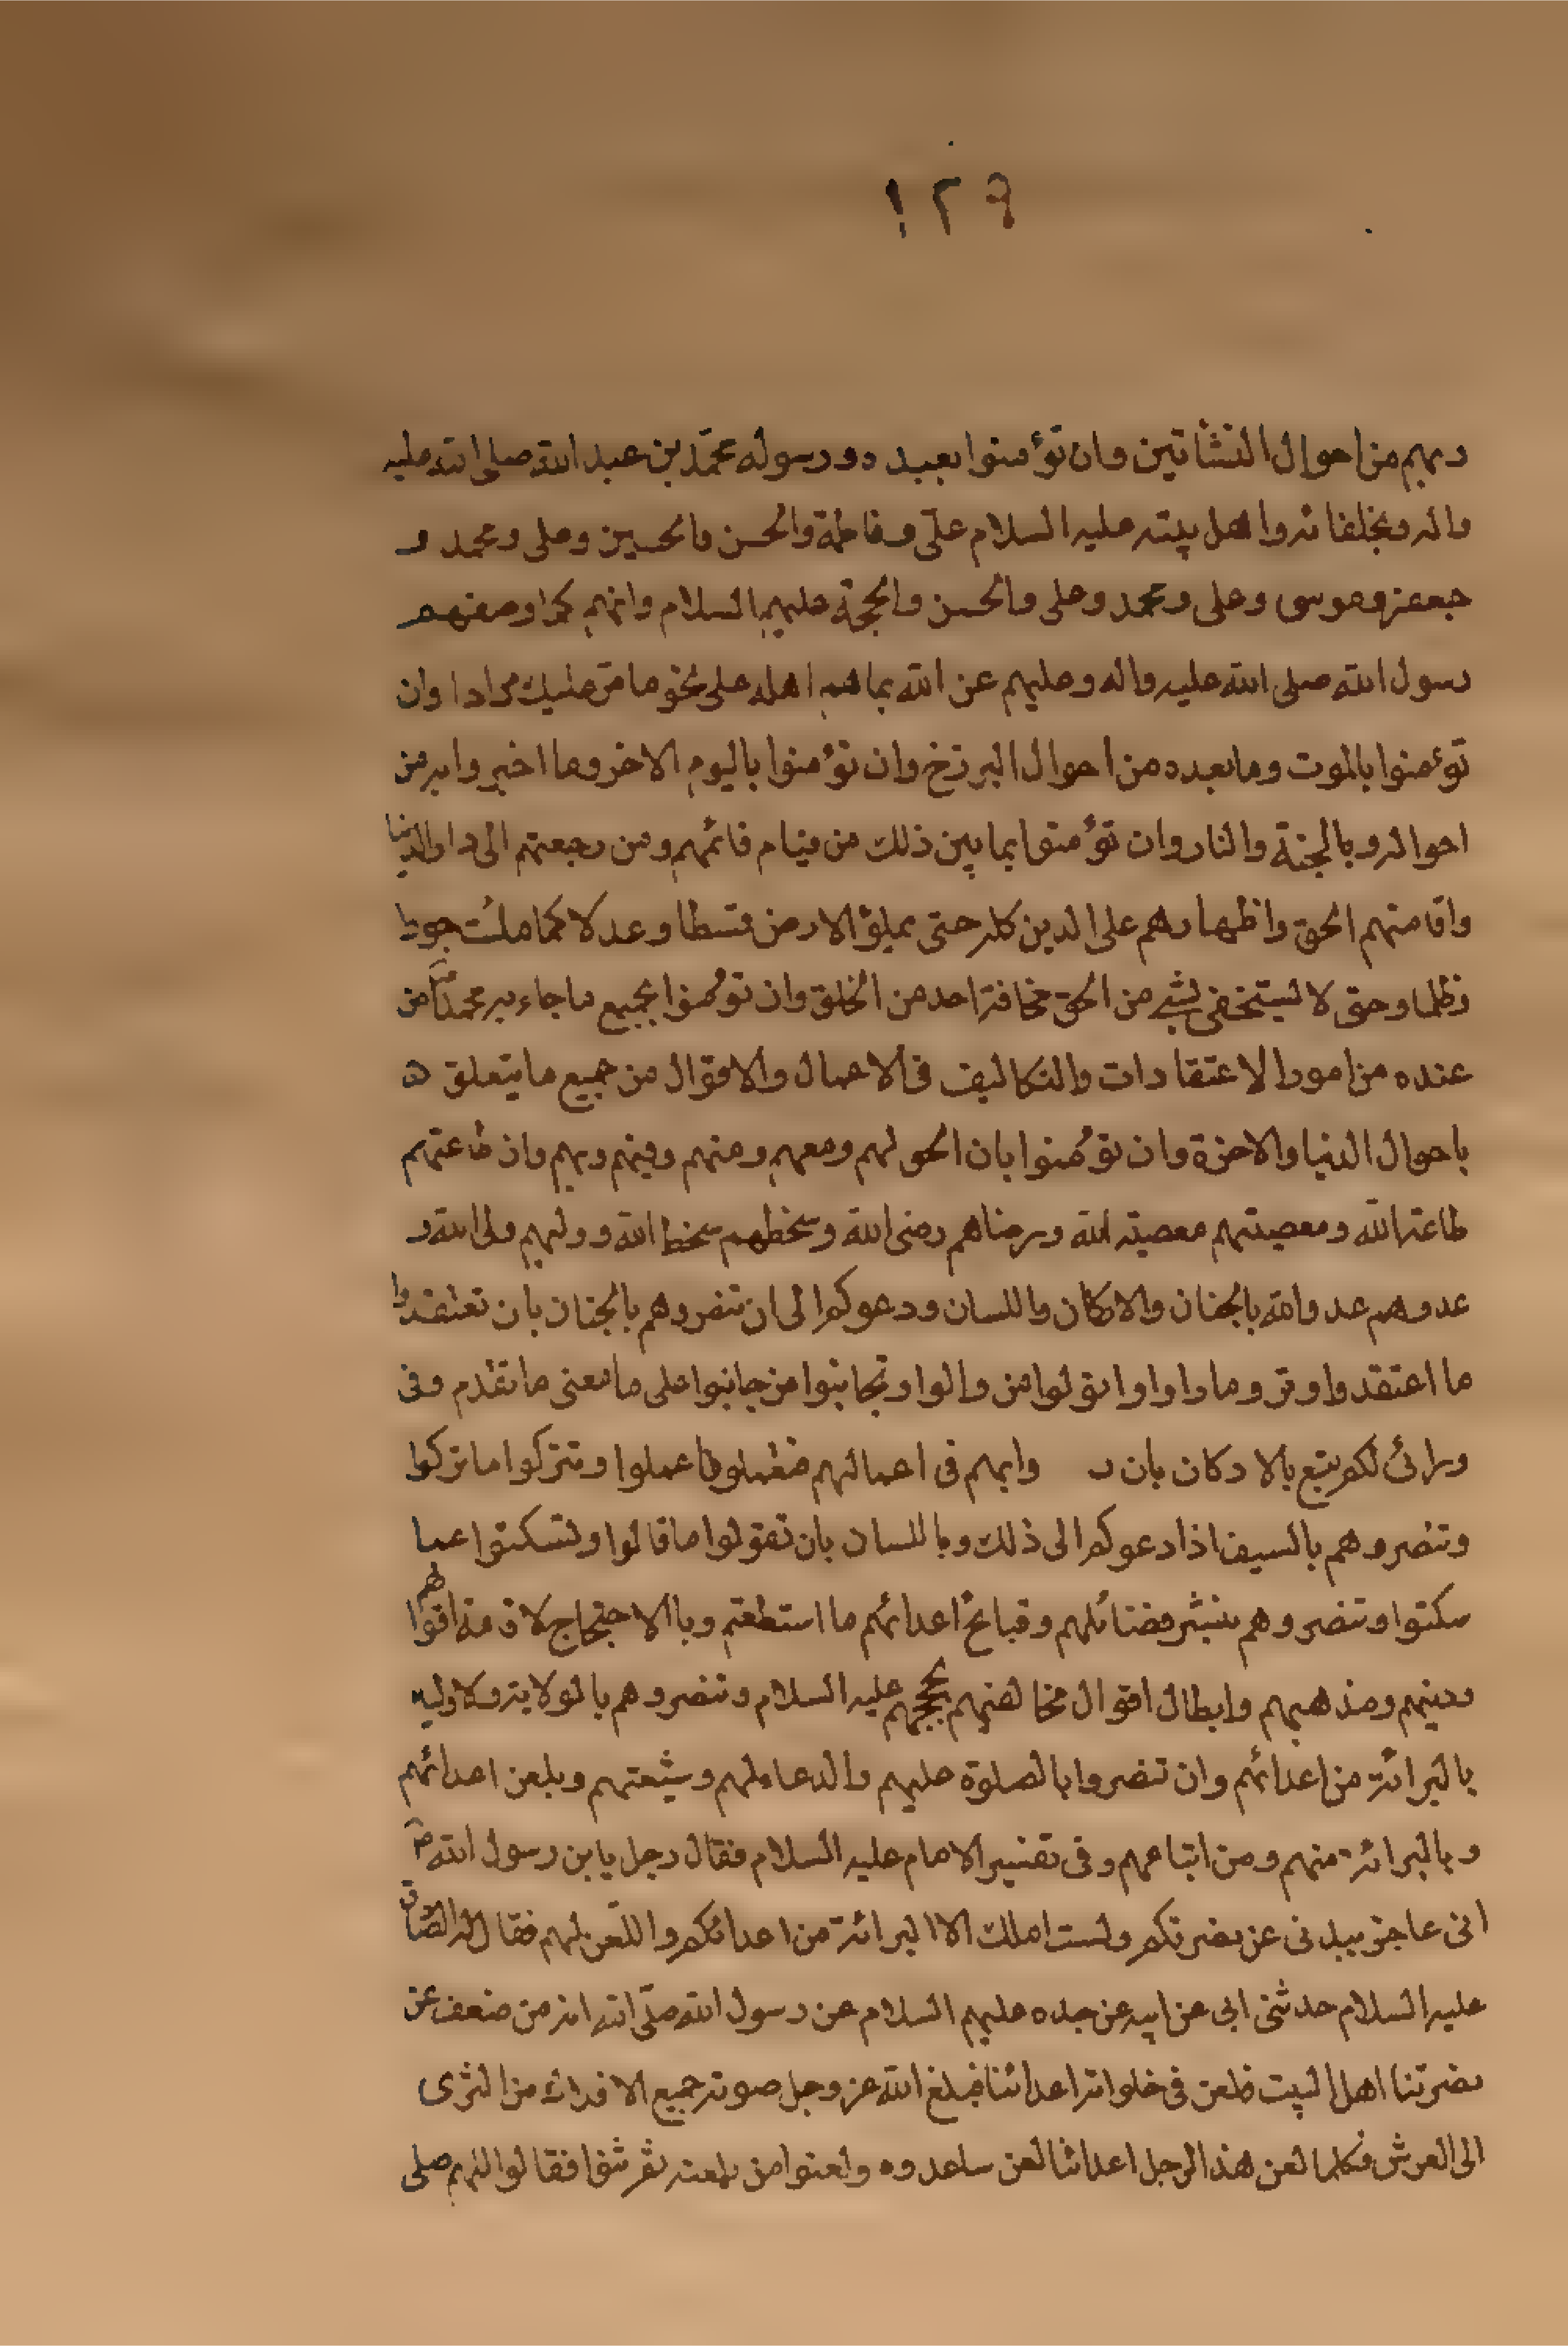 ١٢٩
وبهم من احوال النشأتين وان تؤمنوا بعبده ورسوله محمّد بن عبد الله صلى الله عليه
واله وبخلفائه واهل بيته عليه السلام علىّ وفاطمة والحسن والحسين وعلى ومحمد و
جعفر وموسى وعلى ومحمد وعلى والحسن والحجة عليهم السلام وانهم كما وصفهم
رسول الله صلى الله عليه واله وعليهم عن الله بما هم اهله على نحو ما مرّ عليك مرارا وان
تؤمنوا بالموت وما بعده من احوال البرزخ وان تؤمنوا باليوم الاخر وما اخبروا به من
احواله وبالجنة والنار وان تؤمنوا بما بين ذلك من قيام قائمهم ومن رجعتهم الى دار الدنيا
واقامتهم الحق واظهارهم على الدين كله حتى يملؤا الارض قسطا وعدلا كما ملئت جورا
وظلما وحتى لا يستخفى بشئ من الحق مخافة احد من الخلق وان تؤمنوا بجميع ما جاء به محمد ص من
عنده من امور الاعتقادات والتكاليف فى الاعمال والاقوال من جميع ما يتعلق
باحوال الدنيا والاخرة وان تؤمنوا بان الحق لهم ومعهم ومنهم وفيهم وبهم وان طاعتهم
طاعة الله ومعصيتهم معصية الله ورضاهم رضى الله وسخطهم سخط الله ووليهم ولى الله و
عدوهم عدو الله بالجنان والاركان واللسان ودعوكم الى ان تنصروهم بالجنان بان تعتقدوا
ما اعتقدوا وتروا ما راوا وتولوا من والوا وتجانبوا من جانبوا على ما معنى ما تقدم وفى
ورائى لكم تبع بالاركان بان وابهم فى اعمالهم فتعملوا ما عملوا وتتركوا ما تركوا
وتنصروهم بالسيف اذا دعوكم الى ذلك وباللسان بان تقولوا ما قالوا وتسكتوا عما
سكتوا وتنصروهم بنشر فضائلهم وقبائح اعدائهم ما استطعتم وباالاحتجاج لاقامة اقوالهم
ودينهم ومذهبهم وابطال اقوال مخالفيهم بحججهم عليه السلام وتنصروهم بالولاية ولاوليه
بالبرائة من اعدائهم وان تنصروا بالصلوة عليهم والدعاء لهم وشيعتهم وبلعن اعدائهم
وبالبرائة منهم ومن اتباعهم وفى تفسير الامام عليه السلام فقال رجل يابن رسول الله ص
انى عاجز ببدنى عن نصرتكم ولست املك الا البرائة من اعدائكم واللّعن لهم فقال له الصّادق
عليه السلام حدثنى ابى عن ابيه عن جده عليهم السلام عن رسول الله صلّى الله انه من ضعف عن
نصرتنا اهل البيت فلعن فى خلواته اعدائنا فبلغ الله عز وجل صوته جميع الافلاك من الثرى
الى العرش فكلما لعن هذا الرجل اعدائنا لعن ساعدوه ولعنوا من يلعنه ثم ثنوا فقالوا اللهم صلى